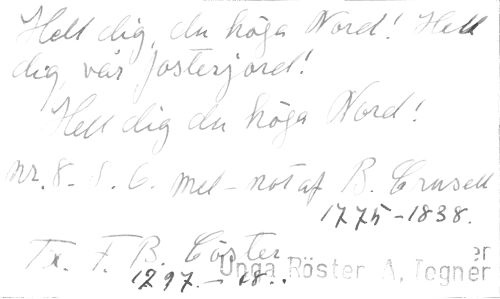 Hell dig, du höga Nord! Hell
dig, vår fosterjord!
Hell dig du höga Nord!
nr. 8 - S. C. mel - not af B. Crusell
1775-1838.
Tx. F. B. Cöster
1797. - 18..
Unga Röster A. Tegner